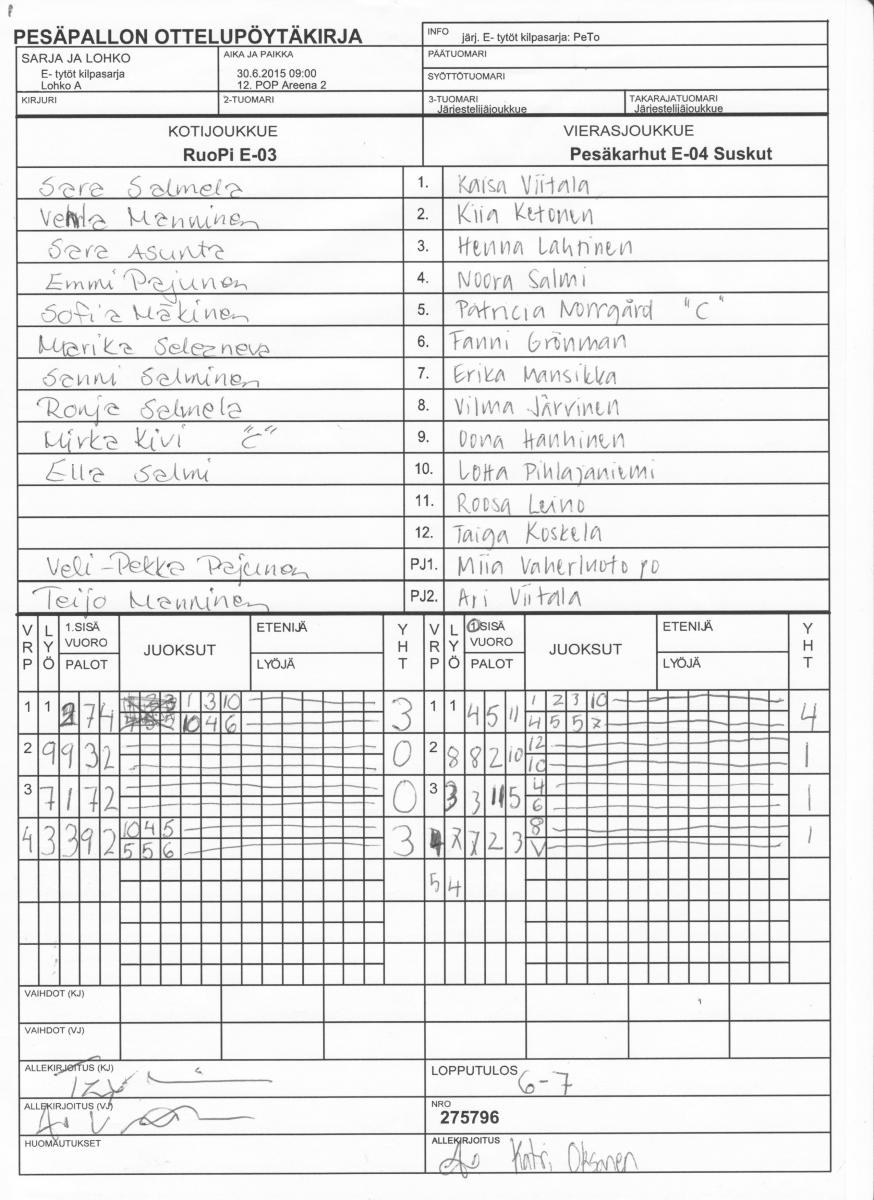 PESÄPALLON OTTELUPÖYTÄKIRJA
INFO järj. E- tytöt kilpasarja: PeTo
SARJA JA LOHKO
E- tytöt kilpasarja
Lohko A
AIKA JA PAIKKA
30.6.2015 09:00
12. POP Areena 2
PÄÄTUOMARI
SYÖTTÖTUOMARI
KIRJURI
2-TUOMARI
3-TUOMARI
Järjestelijäjoukkue
TAKARAJATUOMARI
Järjestelijäjoukkue
KOTIJOUKKUE
RuoPi E-03
VIERASJOUKKUE
Pesäkarhut E-04 Suskut
Sara Salmela 1. Kaisa Viitala
Venla Manninen 2. Kiia Ketonen
Sara Asunta 3. Henna Lahtinen
Emmi Pajunen 4. Noora Salmi
Sofia Mäkinen 5. Patricia Norrgård "C"
Marika Selezneva 6. Fanni Grönman
Sanni Salminen 7. Erika Mansikka
Ronja Salmela 8. Vilma Järvinen
Mirka Kivi "C" 9. Oona Hanhinen
Ella Salmi 10. Lotta Pihlajaniemi
11. Roosa Leino
12. Taiga Koskela
Veli-Pekka Pajunen PJ1. Miia Vaherluoto po
Teijo Manninen PJ2. Ari Viitala
VRP LYÖ 1.SISÄ VUORO PALOT JUOKSUT ETENIJÄ LYÖJÄ YHT VRP LYÖ 1.SISÄ VUORO PALOT JUOKSUT ETENIJÄ LYÖJÄ YHT
1 1 2 7 4 1 3 10 3 1 1 4 5 11 1 2 3 10 4
10 4 6 4 5 5 7
2 9 9 3 2 0 2 8 8 2 10 12 1
10
3 7 1 7 2 0 3 3 3 11 5 4 1
6
4 3 3 9 2 10 4 5 3 4 7 7 2 3 8 1
5 5 6 V
5 4
VAIHDOT (KJ)
VAIHDOT (VJ)
ALLEKIRJOITUS (KJ)
LOPPUTULOS 6-7
ALLEKIRJOITUS (VJ)
NRO
275796
HUOMAUTUKSET
ALLEKIRJOITUS
Katri Oksanen